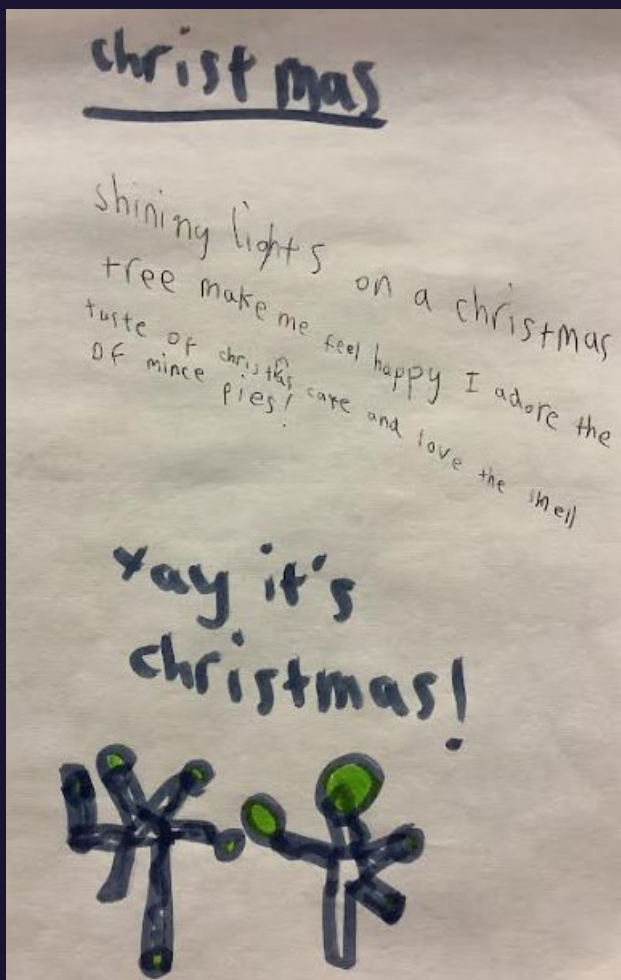 christmas
shining lights on a christmas
tree make me feel happy I adore the
taste of christmas cake and love the smell
of mince pies!
yay it's
christmas!